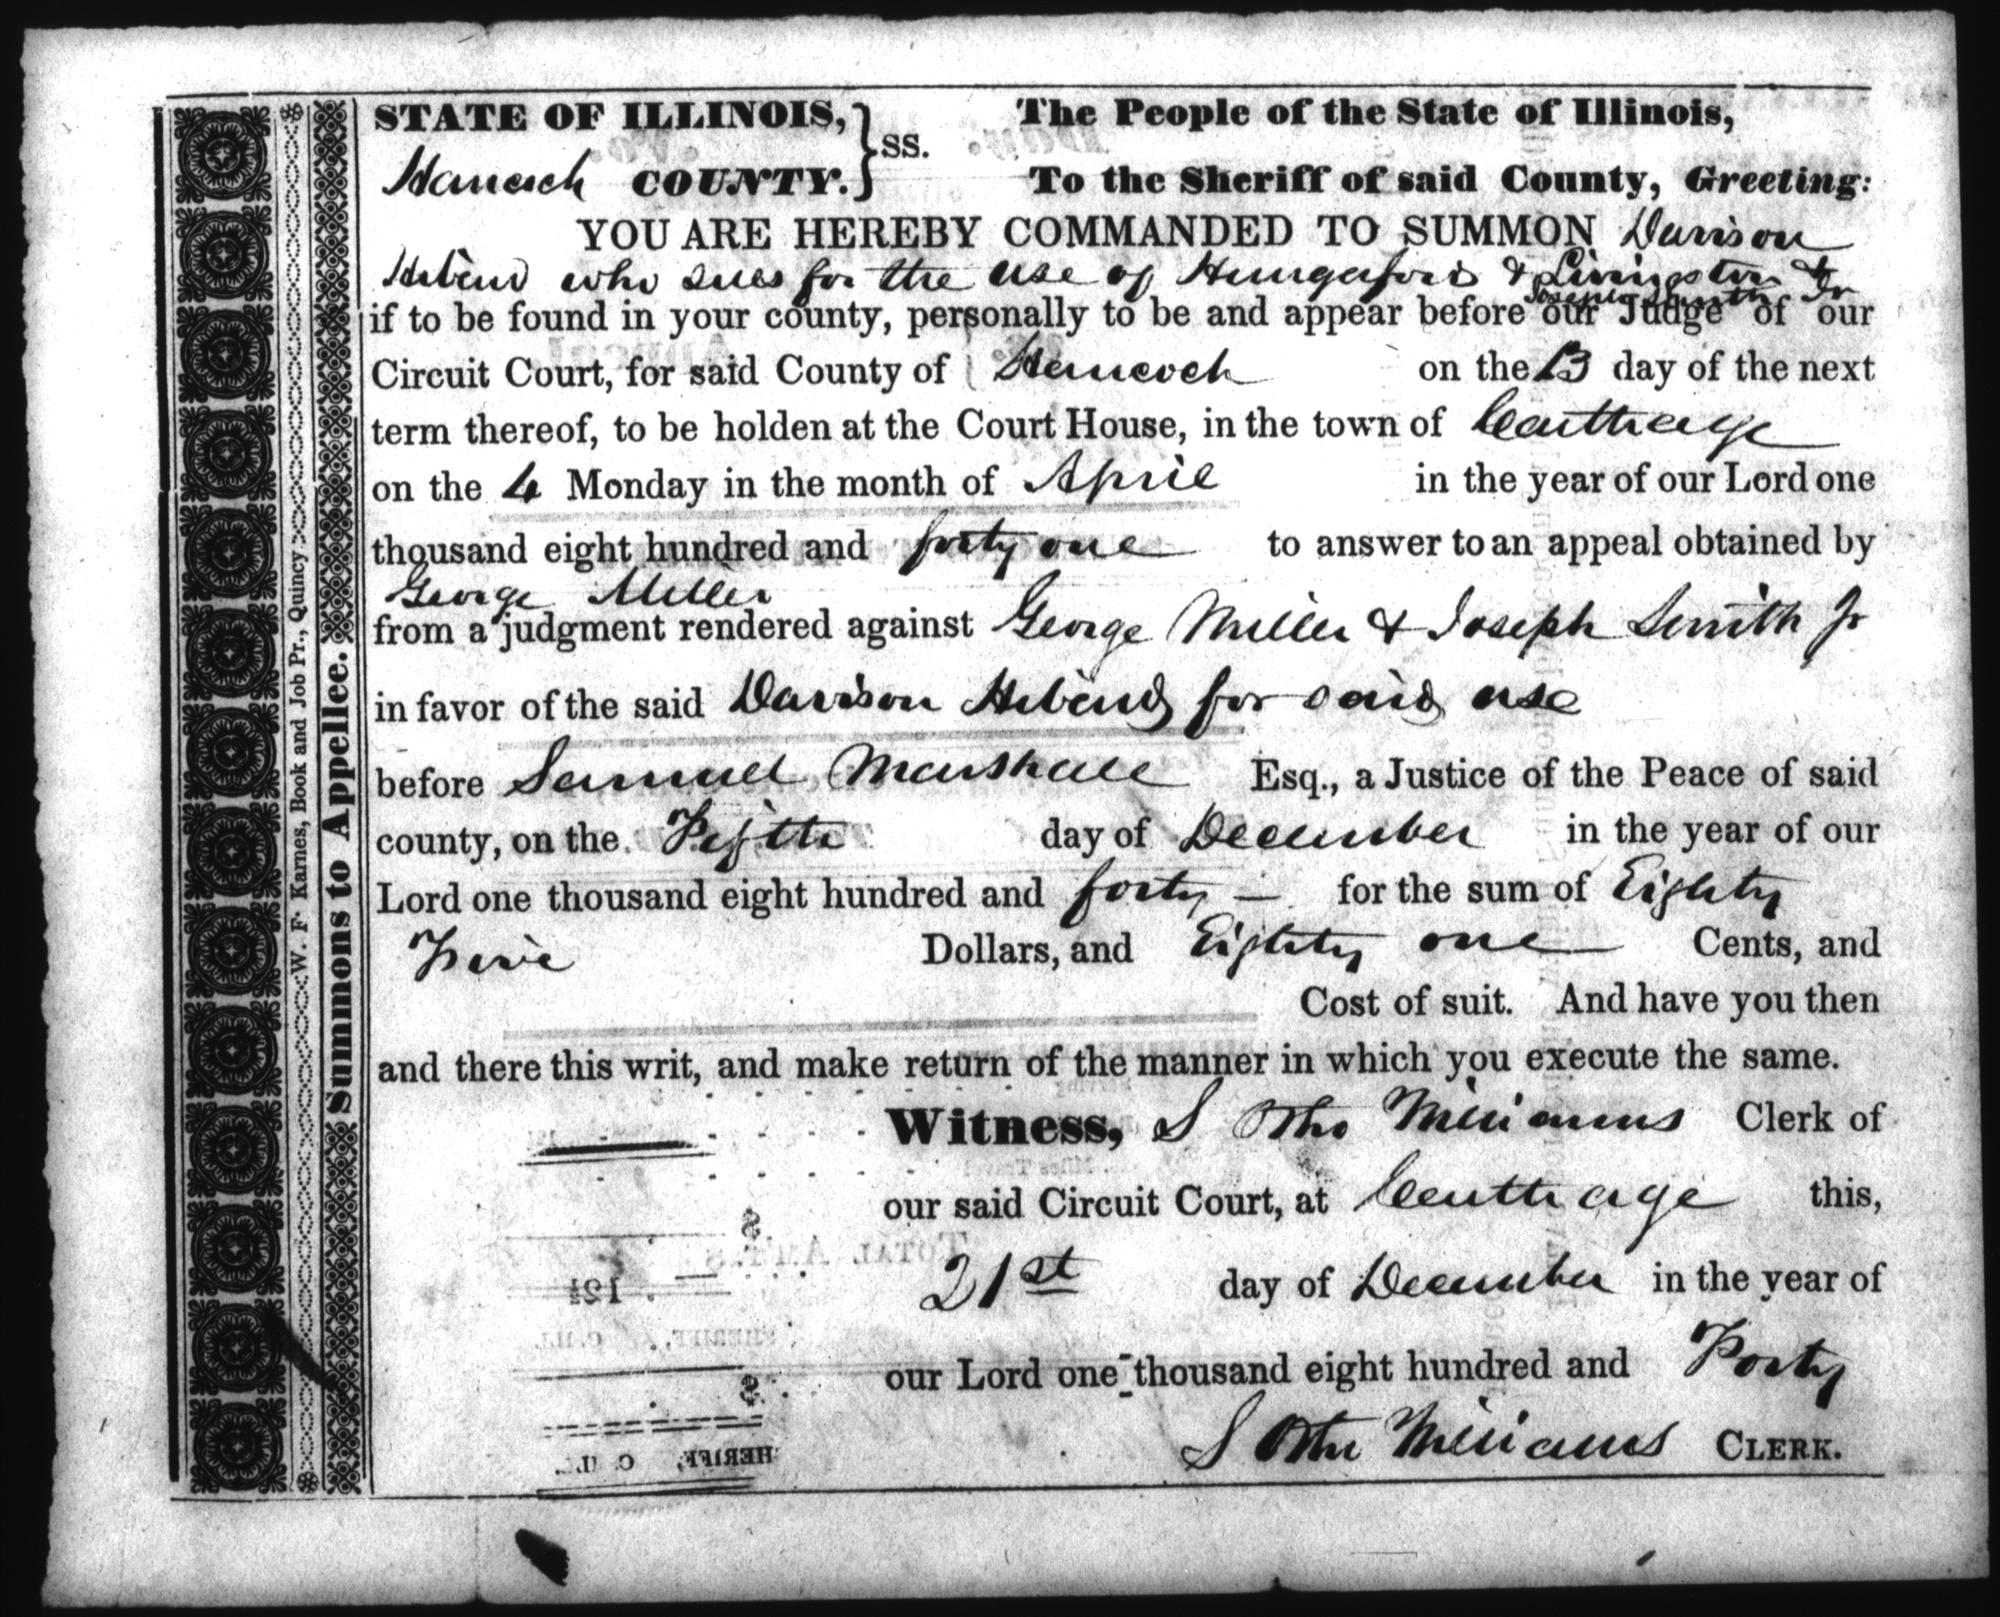 STATE OF ILLINOIS, } SS.
Hancock COUNTY.
The People of the State of Illinois,
To the Sheriff of said County, Greeting:
YOU ARE HEREBY COMMANDED TO SUMMON Davison
Hibard who sues for the use of Hungerford & Livingston &
Joseph Smith Jr
if to be found in your county, personally to be and appear before our Judge of our
Circuit Court, for said County of Hancock on the 13 day of the next
term thereof, to be holden at the Court House, in the town of Carthage
on the 4 Monday in the month of April in the year of our Lord one
thousand eight hundred and forty one to answer to an appeal obtained by
George Miller
from a judgment rendered against George Miller & Joseph Smith Jr
in favor of the said Davison Hibard for said use
before Samuel Marshall Esq., a Justice of the Peace of said
county, on the Fifth day of December in the year of our
Lord one thousand eight hundred and forty — for the sum of Eighty
Five Dollars, and Eighty one Cents, and
Cost of suit. And have you then
and there this writ, and make return of the manner in which you execute the same.
Witness, S Otho Williams Clerk of
our said Circuit Court, at Carthage this,
21st day of December in the year of
our Lord one thousand eight hundred and Forty
S Otho Williams CLERK.
Summons to Appellee.
W. F. Karnes, Book and Job Pr., Quincy